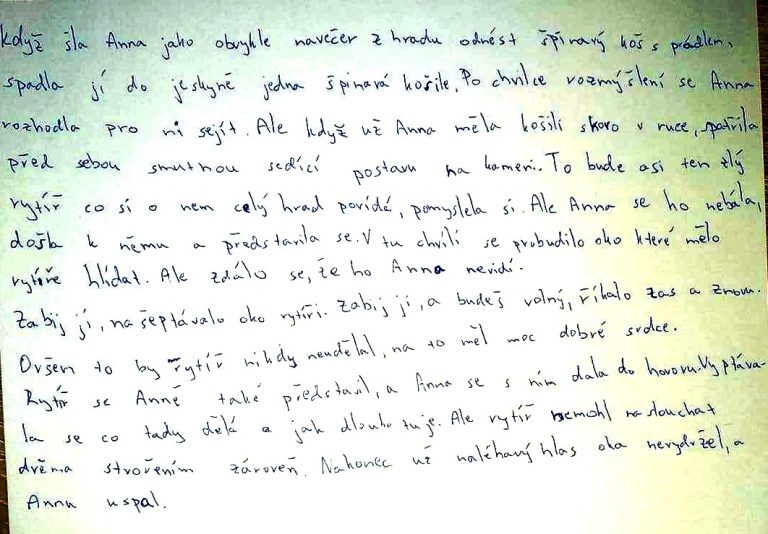 když šla Anna jako obvykle navečer z hradu odnést špinavý koš s prádlem,
spadla jí do jeskyně jedna špinavá košile. Po chvilce rozmýšlení se Anna
rozhodla pro ni sejít. Ale když už Anna měla košili skoro v ruce, spatřila
před sebou smutnou sedící postavu na kameni. To bude asi ten zlý
rytíř co si o nem celý hrad povídá, pomyslela si. Ale Anna se ho nebála,
došla k němu a představila se. V tu chvíli se probudilo oko které mělo
rytíře hlídat. Ale zdálo se, že ho Anna nevidí.
Zabij jí, našeptávalo oko rytíři. Zabij jí, a budeš volný, říkalo zas a znovu.
Ovšem to by rytíř nikdy neudělal, na to měl moc dobré srdce.
Rytíř se Anně také představil, a Anna se s ním dala do hovoru. Vyptáva-
la se co tady dělá a jak dlouho tu je. Ale rytíř nemohl naslouchat
dvěma stvořením zároveň. Nakonec už naléhavý hlas oka nevydržel, a
Annu uspal.